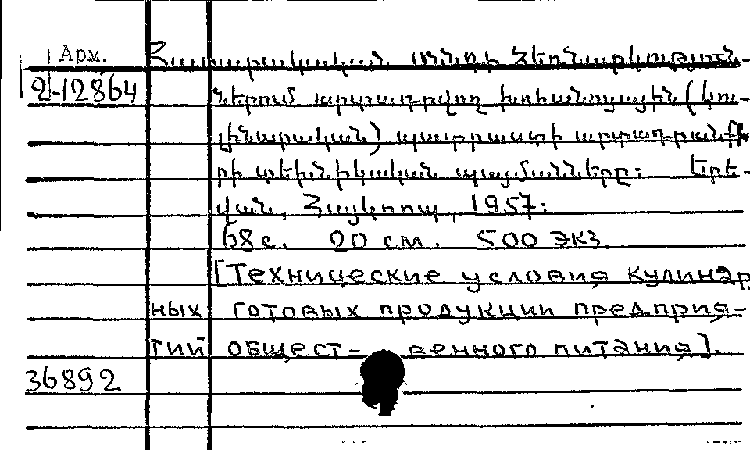 Арх. Հասարակական սննդի ձեռնարկություն-
2-12864 ներում արտադրվող խոհանոցային (կու-
լինարական) պատրաստի արտադրանք-
րի տեխնիկական պայմանները: Երե-
վան, Հայկոոպ, 1957:
68 с. 20 см. 500 экз.
[Технические условия кулинар
ных готовых продукции предприя-
тий общест- венного питания].
36892